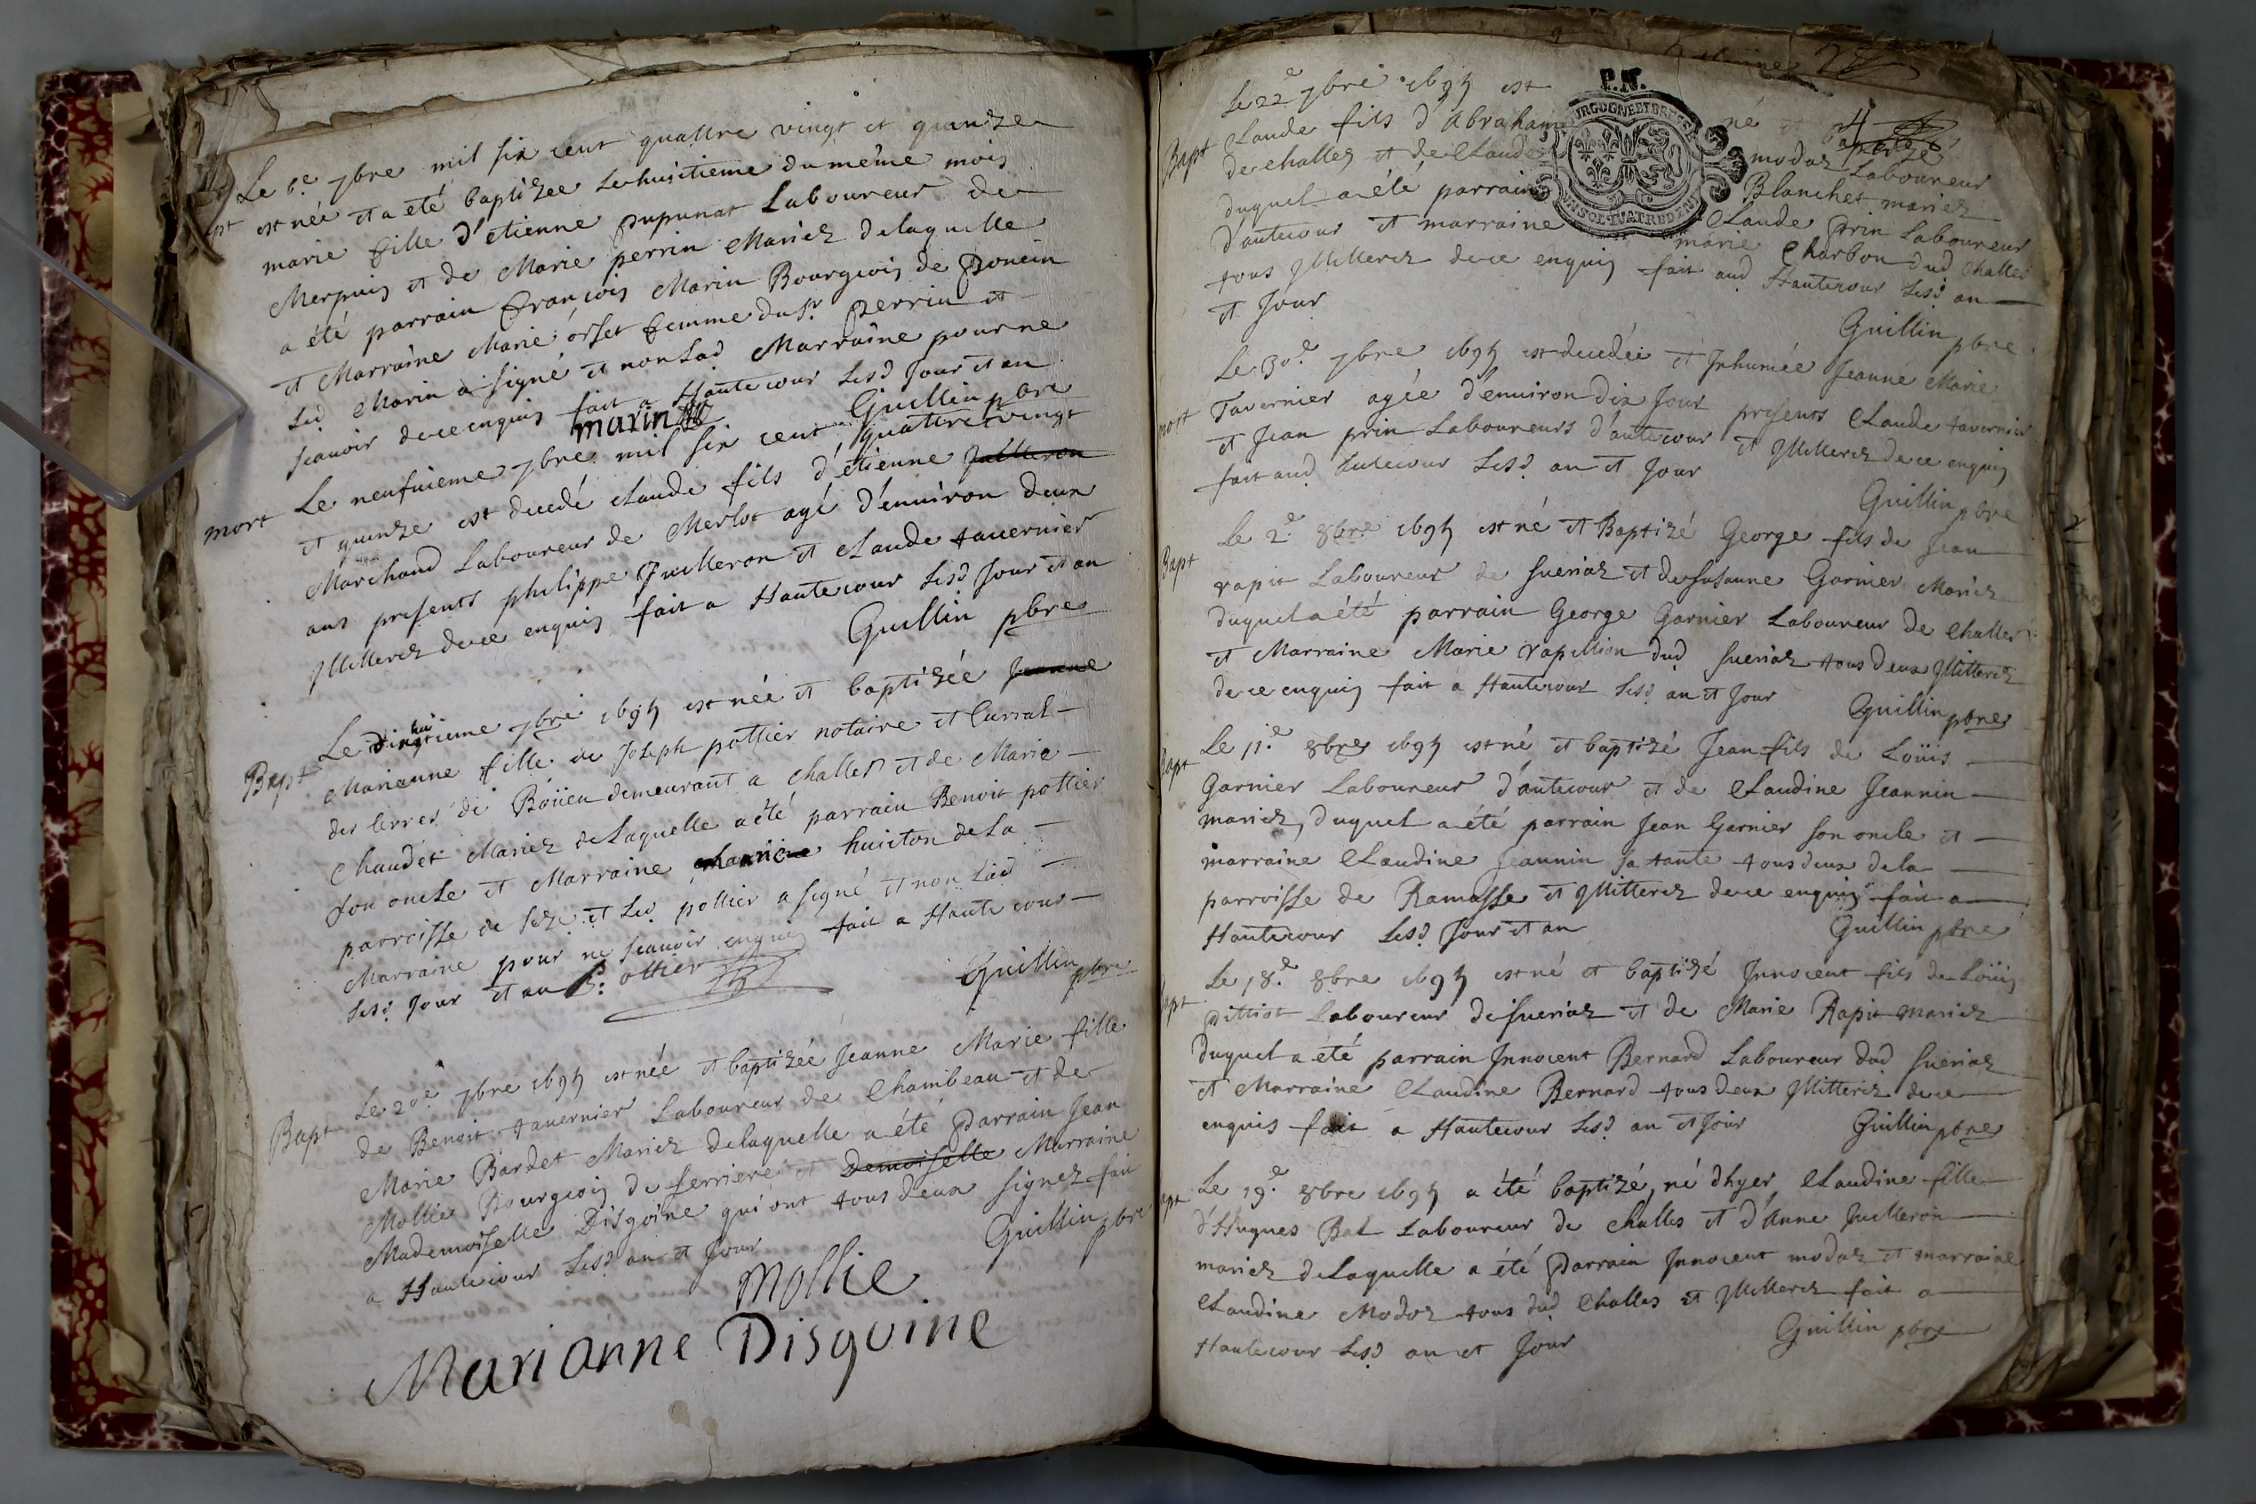 Le 6e 7bre mil six cent quattre vingt et quinze
est née et a eté baptizee le huictieme du même mois
marie fille d'etienne Dupunat Laboureur de
Merpuis et de Marie perrin Mariez de laquelle
a été parrain François Marin Bourgeois de Poncin
et Marraine Marie orset femme du Sr perrin et
Led Marin a signé et non Lad Marraine pour ne
scavoir de ce enquis fait a Hautecour Lesd Jour et an
marin Guillin pbre
mort
Le neufvieme 7bre mil six cent quattre vingt
et quinze est decedé Claude fils d'étienne
Marchand Laboureur de Merlot agé d'environ deux
ans presents philippe Juilleron et Claude tavernier
Illitterez de ce enquis fait a Hautecour Lesd Jour et an
Guillin pbre
Bapt
Le 7bre 1695 est née et baptizée Jeanne
Marianne fille de Joseph pottier notaire et Curial
des terres de Boüen demeurant a challes et de Marie
Chaudet Mariez de Laquelle a été parrain Benoit pottier
son oncle et Marraine huiton de La
parroisse de et Led pottier a signé et non Lad
Marraine pour ne scavoir enquis fait a Hautecour
Lesd Jour et an B. ottier
Guillin pbre
Bapt
Le 20e 7bre 1695 est née et baptizée Jeanne Marie fille
de Benoit tavernier Laboureur de Chambeau et de
Marie Bardet Mariez de laquelle a été Parrain Jean
Mollie Bourgeois de ferriere et Demoiselle Marraine
Mademoiselle Disgoine qui ont tous deux signez fait
a Hautecour Lesd an et Jour Guillin pbre
Mollie
Marianne Disgoine
Le 22e 7bre 1695 est né et baptizé
Bapt
Claude fils d'Abraham modaz Laboureur
de challes et de Claude Blanchet mariez
duquel a été parrain Claude Prin Laboureur
d'autecour et marraine marie Charbon dud Challes
tous Illitterez de ce enquis fait aud Hautecour Lesd an
et Jour
Guillin pbre
Le 30e 7bre 1695 est decedée et Inhumée Jeanne Marie
mort
Tavernier agée d'environ dix Jour presents Claude tavernier
et Jean prin Laboureurs d'autecour et Illitterez de ce enquis
fait aud autecour Lesd an et Jour
Guillin pbre
Le 2e 8bre 1695 est né et Baptizé George fils de Jean
Bapt
rapit Laboureur de sueriaz et de susanne Garnier Mariez
duquel a été parrain George Garnier Laboureur de Challes
et Marraine Marie rapillion dud sueriaz tous deux Illitterez
de ce enquis fait a Hautecour Lesd an et Jour
Guillin pbre
Le 11e 8bre 1695 est né et baptizé Jean fils de Loüis
Bapt
Garnier Laboureur d'autecour et de Claudine Jeannin
mariez, duquel a été parrain Jean Garnier son oncle et
marraine Claudine Jeannin sa tante tous deux de la
parroisse de Ramasse et Illitterez de ce enquis fait a
Hautecour Lesd Jour et an
Guillin pbre
Le 18e 8bre 1695 est né et baptizé Innocent fils de Loüis
Bapt
pittiot Laboureur de sueriaz et de Marie Rapit mariez
duquel a eté parrain Innocent Bernard Laboureur dud sueriaz
et Marraine Claudine Bernard tous deux Illitterez de ce
enquis fait a Hautecour Lesd an et Jour
Guillin pbre
Le 19e 8bre 1695 a été baptizé, né d'hyer Claudine fille
d'Hugues Bal Laboureur de challes et d'Anne Juilleron
mariez de Laquelle a été Parrain Innocent modaz et marraine
Claudine Modoz tous dud Challes et Illitterez fait a
Hautecour Lesd an et Jour
Guillin pbre